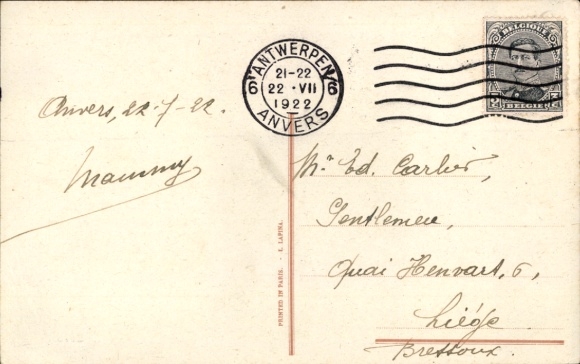 ANTWERPEN
6 6
21-22
22 · VII
1922
ANVERS
BELGIQUE
BELGIË
Anvers, 22-7-22.
Mammy
Mr. Ed. Carlier,
Gentlemen,
Quai Henvart, 6,
Liége
Bressoux.
PRINTED IN PARIS. - I. LAPINA.